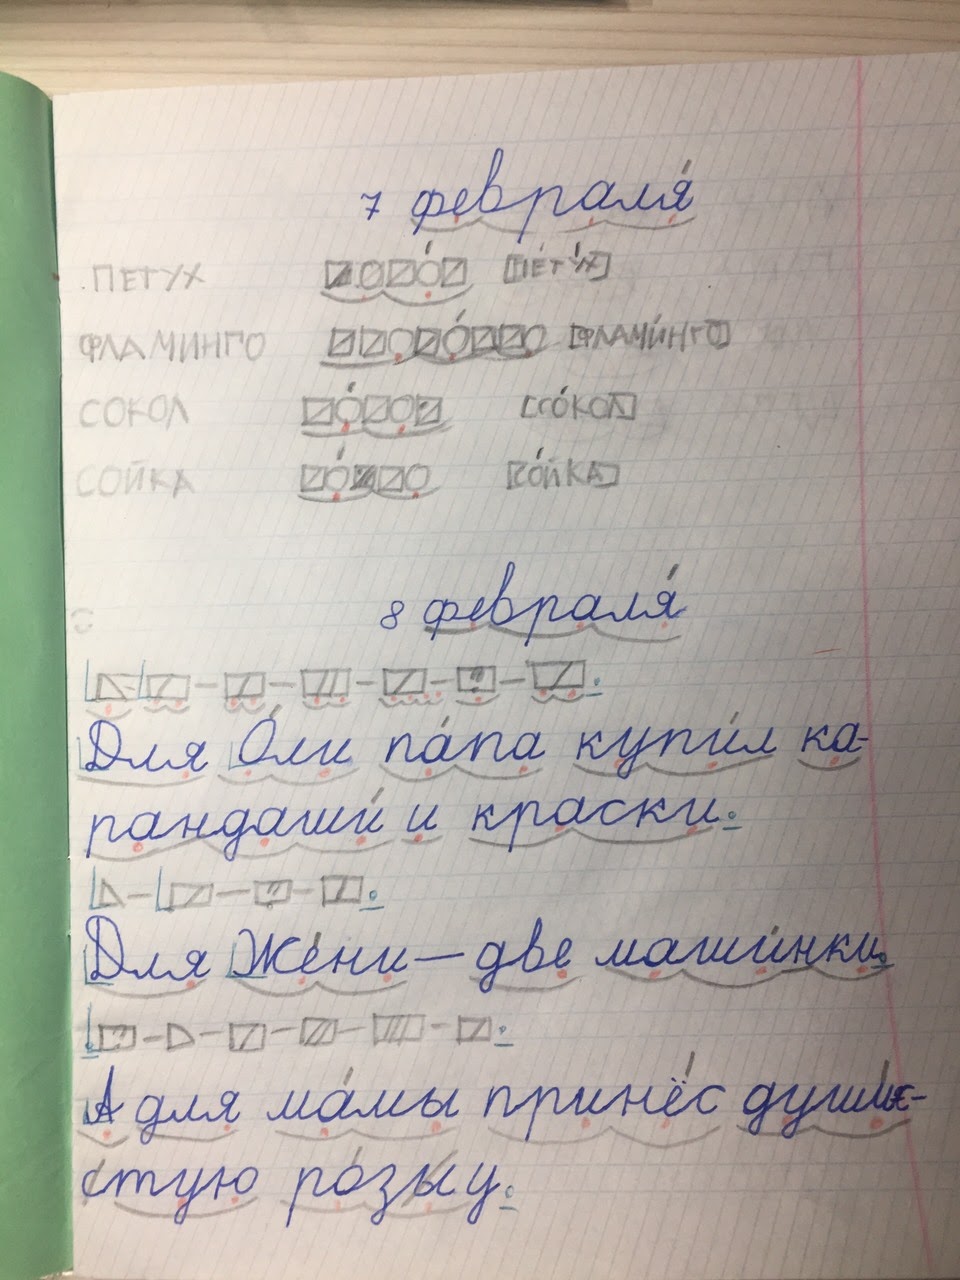 7 февраля́
ПЕТУХ [ПЕТУ́Х]
ФЛАМИНГО [ФЛАМИ́НГО]
СОКОЛ [СО́КОЛ]
СОЙКА [СО́ЙКА]
8 февраля́
Для О́ли па́па купи́л ка-
рандаши́ и краски.
Для Же́ни — две маши́нки.
А для ма́мы принёс души-
стую ро́зы у.